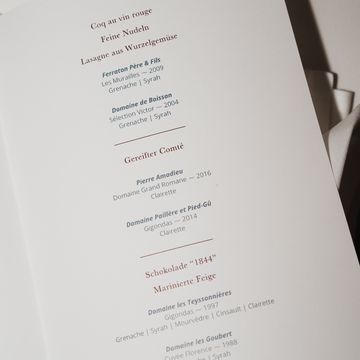 Coq au vin rouge
Feine Nudeln
Lasagne aus Wurzelgemüse
Ferraton Père & Fils
Les Murailles — 2009
Grenache | Syrah
Domaine de Boissan
Sélection Victor — 2004
Grenache | Syrah
Gereifter Comté
Pierre Amadieu
Domaine Grand Romane — 2016
Clairette
Domaine Paillère et Pied-Gû
Gigondas — 2014
Clairette
Schokolade “1844”
Marinierte Feige
Domaine les Teyssonnières
Gigondas — 1997
Grenache | Syrah | Mourvèdre | Cinsault | Clairette
Domaine les Goubert
Cuvée Florence — 1988